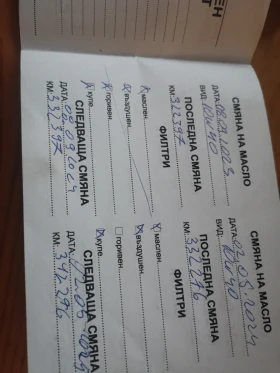 СМЯНА НА МАСЛО
ДАТА:
ВИД: 10W40
ПОСЛЕДНА СМЯНА
КМ: 322397
ФИЛТРИ
маслен
въздушен
горивен
купе
СЛЕДВАЩА СМЯНА
ДАТА:
КМ: 332397
СМЯНА НА МАСЛО
ДАТА: 02.05.2024
ВИД: 10W40
ПОСЛЕДНА СМЯНА
КМ: 332276
ФИЛТРИ
маслен
въздушен
горивен
купе
СЛЕДВАЩА СМЯНА
ДАТА:
КМ: 342276